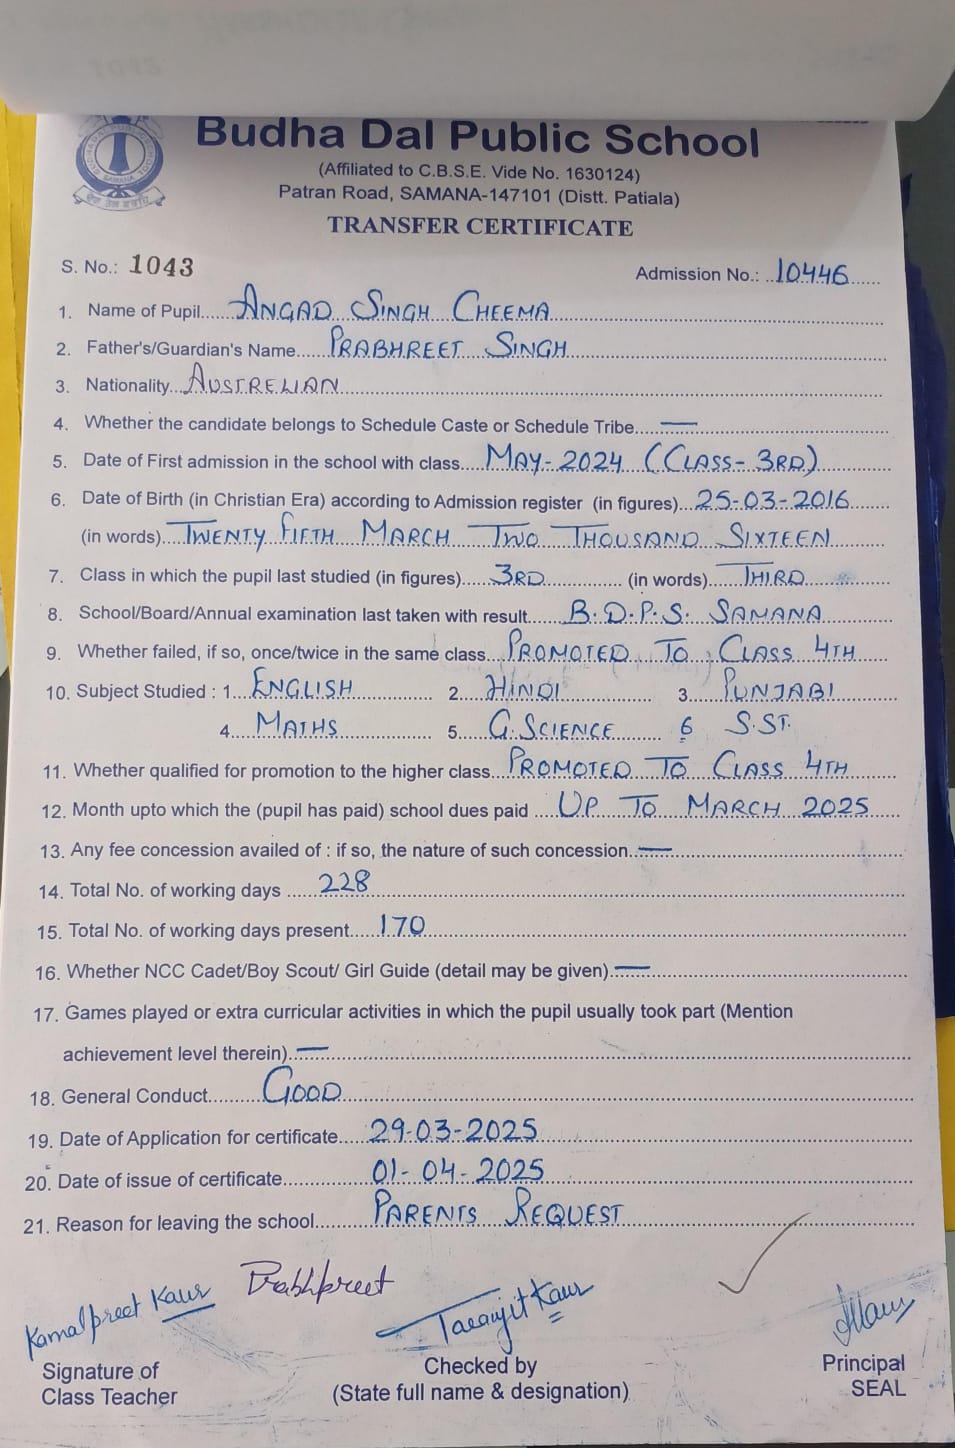 Budha Dal Public School
(Affiliated to C.B.S.E. Vide No. 1630124)
Patran Road, SAMANA-147101 (Distt. Patiala)
TRANSFER CERTIFICATE
S. No.: 1043
Admission No.: 10446
1. Name of Pupil ANGAD SINGH CHEEMA
2. Father's/Guardian's Name PRABHREET SINGH
3. Nationality AUSTRELIAN
4. Whether the candidate belongs to Schedule Caste or Schedule Tribe —
5. Date of First admission in the school with class MAY-2024 (CLASS-3RD)
6. Date of Birth (in Christian Era) according to Admission register (in figures) 25-03-2016
(in words) TWENTY FIFTH MARCH TWO THOUSAND SIXTEEN
7. Class in which the pupil last studied (in figures) 3RD (in words) THIRD
8. School/Board/Annual examination last taken with result B.D.P.S. SAMANA
9. Whether failed, if so, once/twice in the same class PROMOTED TO CLASS 4TH
10. Subject Studied : 1. ENGLISH 2. HINDI 3. PUNJABI
4. MATHS 5. G.SCIENCE 6 S.ST.
11. Whether qualified for promotion to the higher class PROMOTED TO CLASS 4TH
12. Month upto which the (pupil has paid) school dues paid UP TO MARCH 2025
13. Any fee concession availed of : if so, the nature of such concession —
14. Total No. of working days 228
15. Total No. of working days present 170
16. Whether NCC Cadet/Boy Scout/ Girl Guide (detail may be given) —
17. Games played or extra curricular activities in which the pupil usually took part (Mention
achievement level therein) —
18. General Conduct GOOD
19. Date of Application for certificate 29-03-2025
20. Date of issue of certificate 01-04-2025
21. Reason for leaving the school PARENTS REQUEST
Kamalpreet Kaur Prabhpreet Taranjit Kaur
Signature of
Class Teacher
Checked by
(State full name & designation)
Principal
SEAL